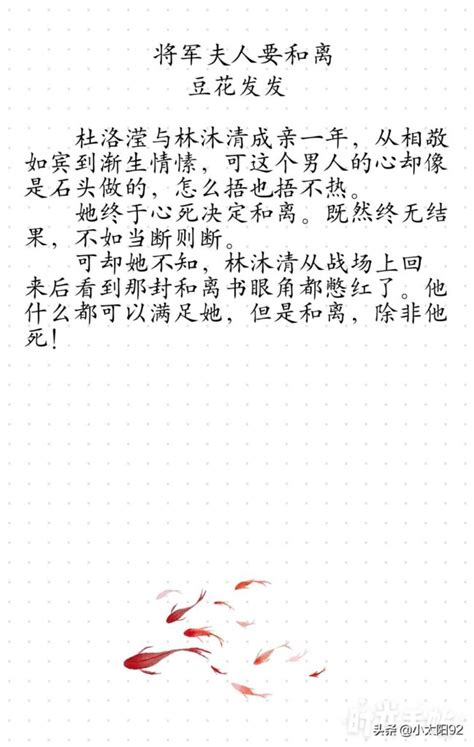 将军夫人要和离
豆花发发
杜洛滢与林沐清成亲一年，从相敬
如宾到渐生情愫，可这个男人的心却像
是石头做的，怎么捂也捂不热。
她终于心死决定和离。既然终无结
果，不如当断则断。
可却她不知，林沐清从战场上回
来后看到那封和离书眼角都憋红了。他
什么都可以满足她，但是和离，除非他
死！
头条 @小太阳92